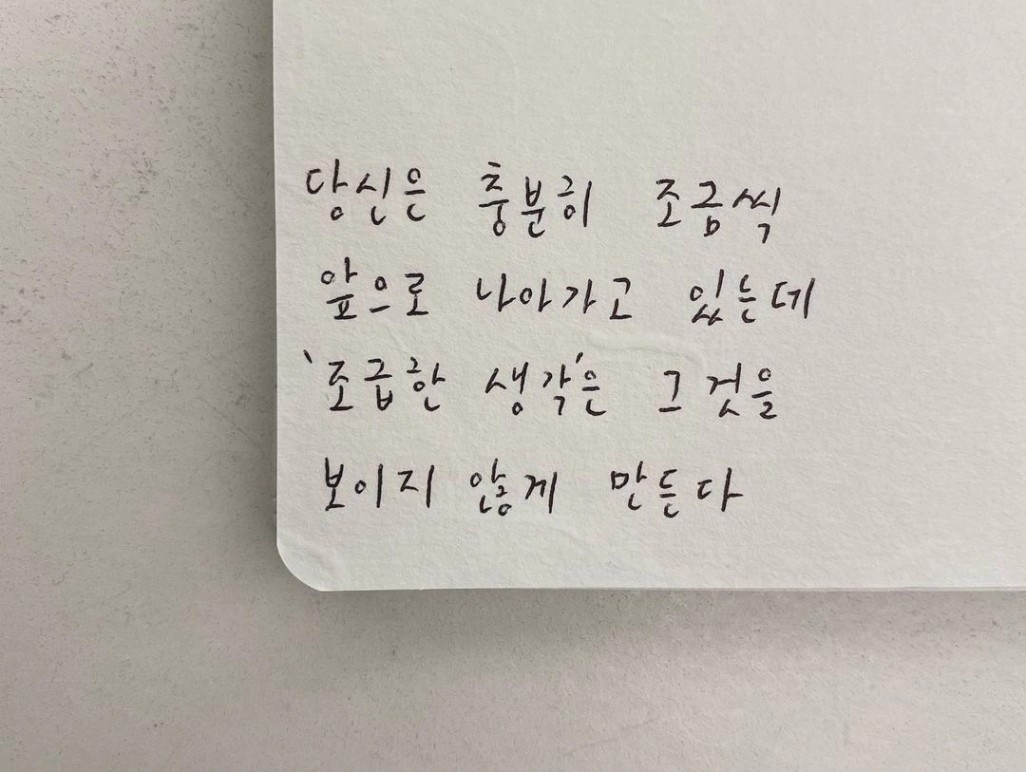 당신은 충분히 조금씩
앞으로 나아가고 있는데
'조급한 생각'은 그것을
보이지 않게 만든다